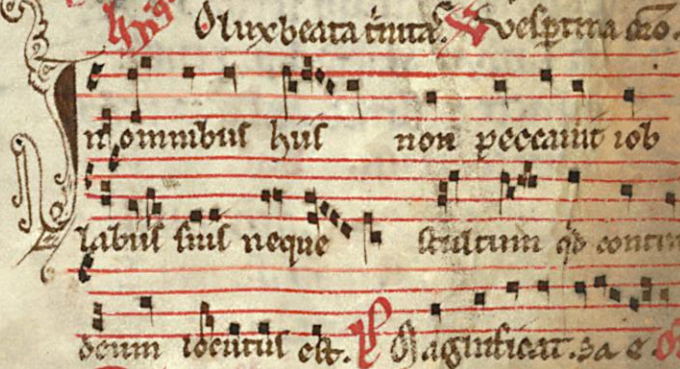 O lux beata trinitas. V vesp̄tina or̄o.
In omnibus hiis non peccauit iob
labiis suis neque stultum qd contra
deum locutus est. Ps Magnificat.